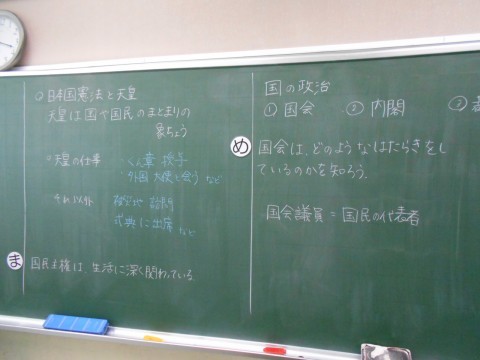 ○日本国憲法と天皇
天皇は国や国民のまとまりの
象ちょう
○天皇の仕事
・くん章授子
・外国大使と会う など
それ以外
被災地 訪問
式典に出席 など
ま
国民主権は、生活に深く関わっている
国の政治
① 国会 ② 内閣 ③
め
国会は、どのようなはたらきをし
ているのかを知ろう。
国会議員=国民の代表者